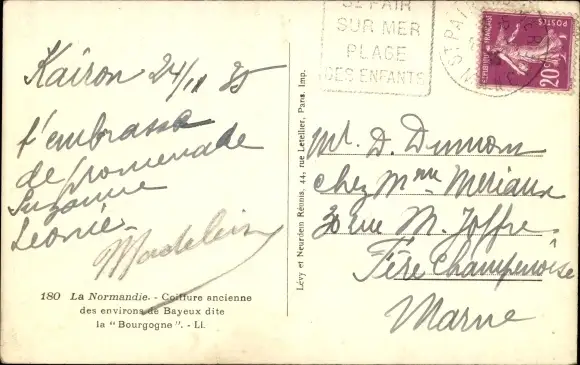 Kairon 24/11 35
t'embrasse
de promenade
Suzanne
Léonie
Madelein
180 La Normandie. - Coiffure ancienne
des environs de Bayeux dite
la "Bourgogne". - LL
Lévy et Neurdein Réunis, 44, rue Letellier, Paris. Imp.
ST PAIR
SUR MER
PLAGE
DES ENFANTS
ST PAIR
POSTES
20c
Mr. D. Dumon
chez Mme Meriaux
30 rue M. Joffre
Fère Champenoise
Marne